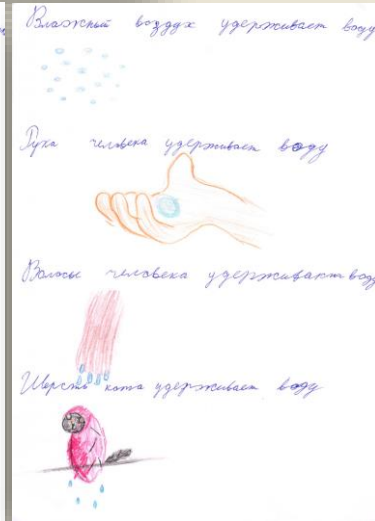 Влажный воздух удерживает воду
Рука человека удерживает воду
Волосы человека удерживают воду
Шерсть кота удерживает воду